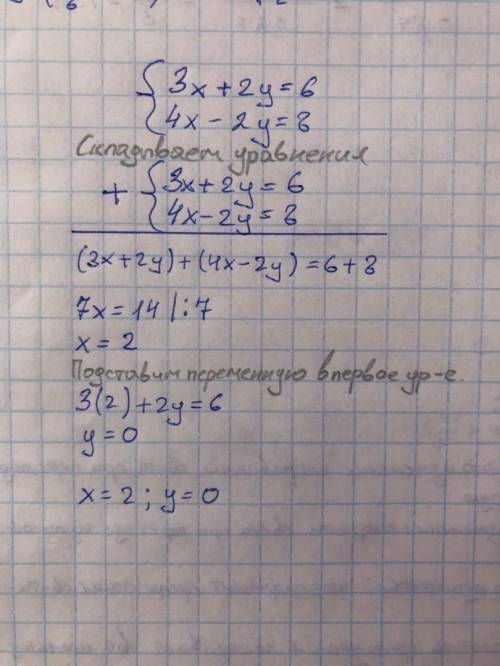 3x + 2y = 6
4x - 2y = 8
Складываем уравнения
+ 3x + 2y = 6
4x - 2y = 8
(3x+2y)+(4x-2y)=6+8
7x = 14 |:7
x = 2
Подставим переменную в первое ур-е.
3(2)+2y=6
y=0
x=2; y=0